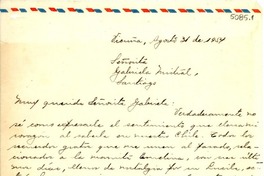 5085.1
Vicuña, Agosto 31 de 1954
Señorita
Gabriela Mistral,
Santiago
Muy querida Señorita Gabriela:
Verdaderamente no
sé como expresarle el sentimiento que llena mi
corazón al saberla en nuestro Chile. Todos los
recuerdos gratos que me unen al pasado, rela-
cionados a la Emelina, con sus últi-
mos días, llenos de nostalgia por su